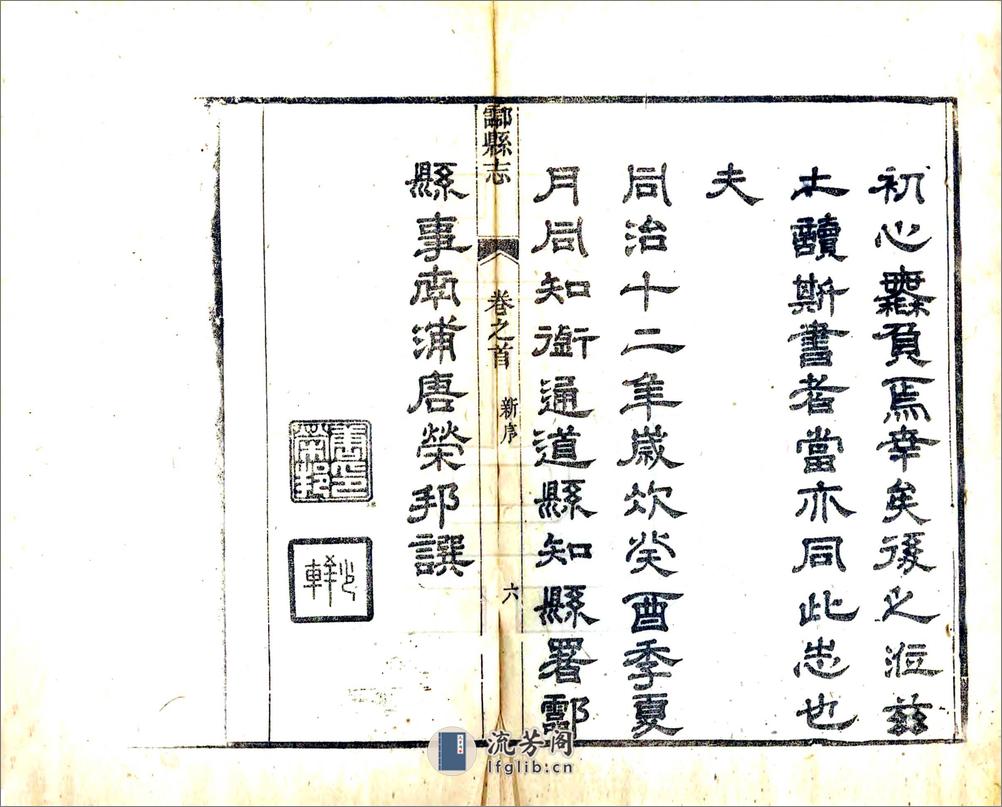 初心無負焉幸矣後之涖兹
土讀斯書者當亦同此志也
夫
同治十二年歲次癸酉季夏
月同知銜通道縣知縣署酃
酃縣志
卷之首
新序
六
縣事南浦唐榮邦撰
唐印榮邦
流芳阁
lfglib.cn